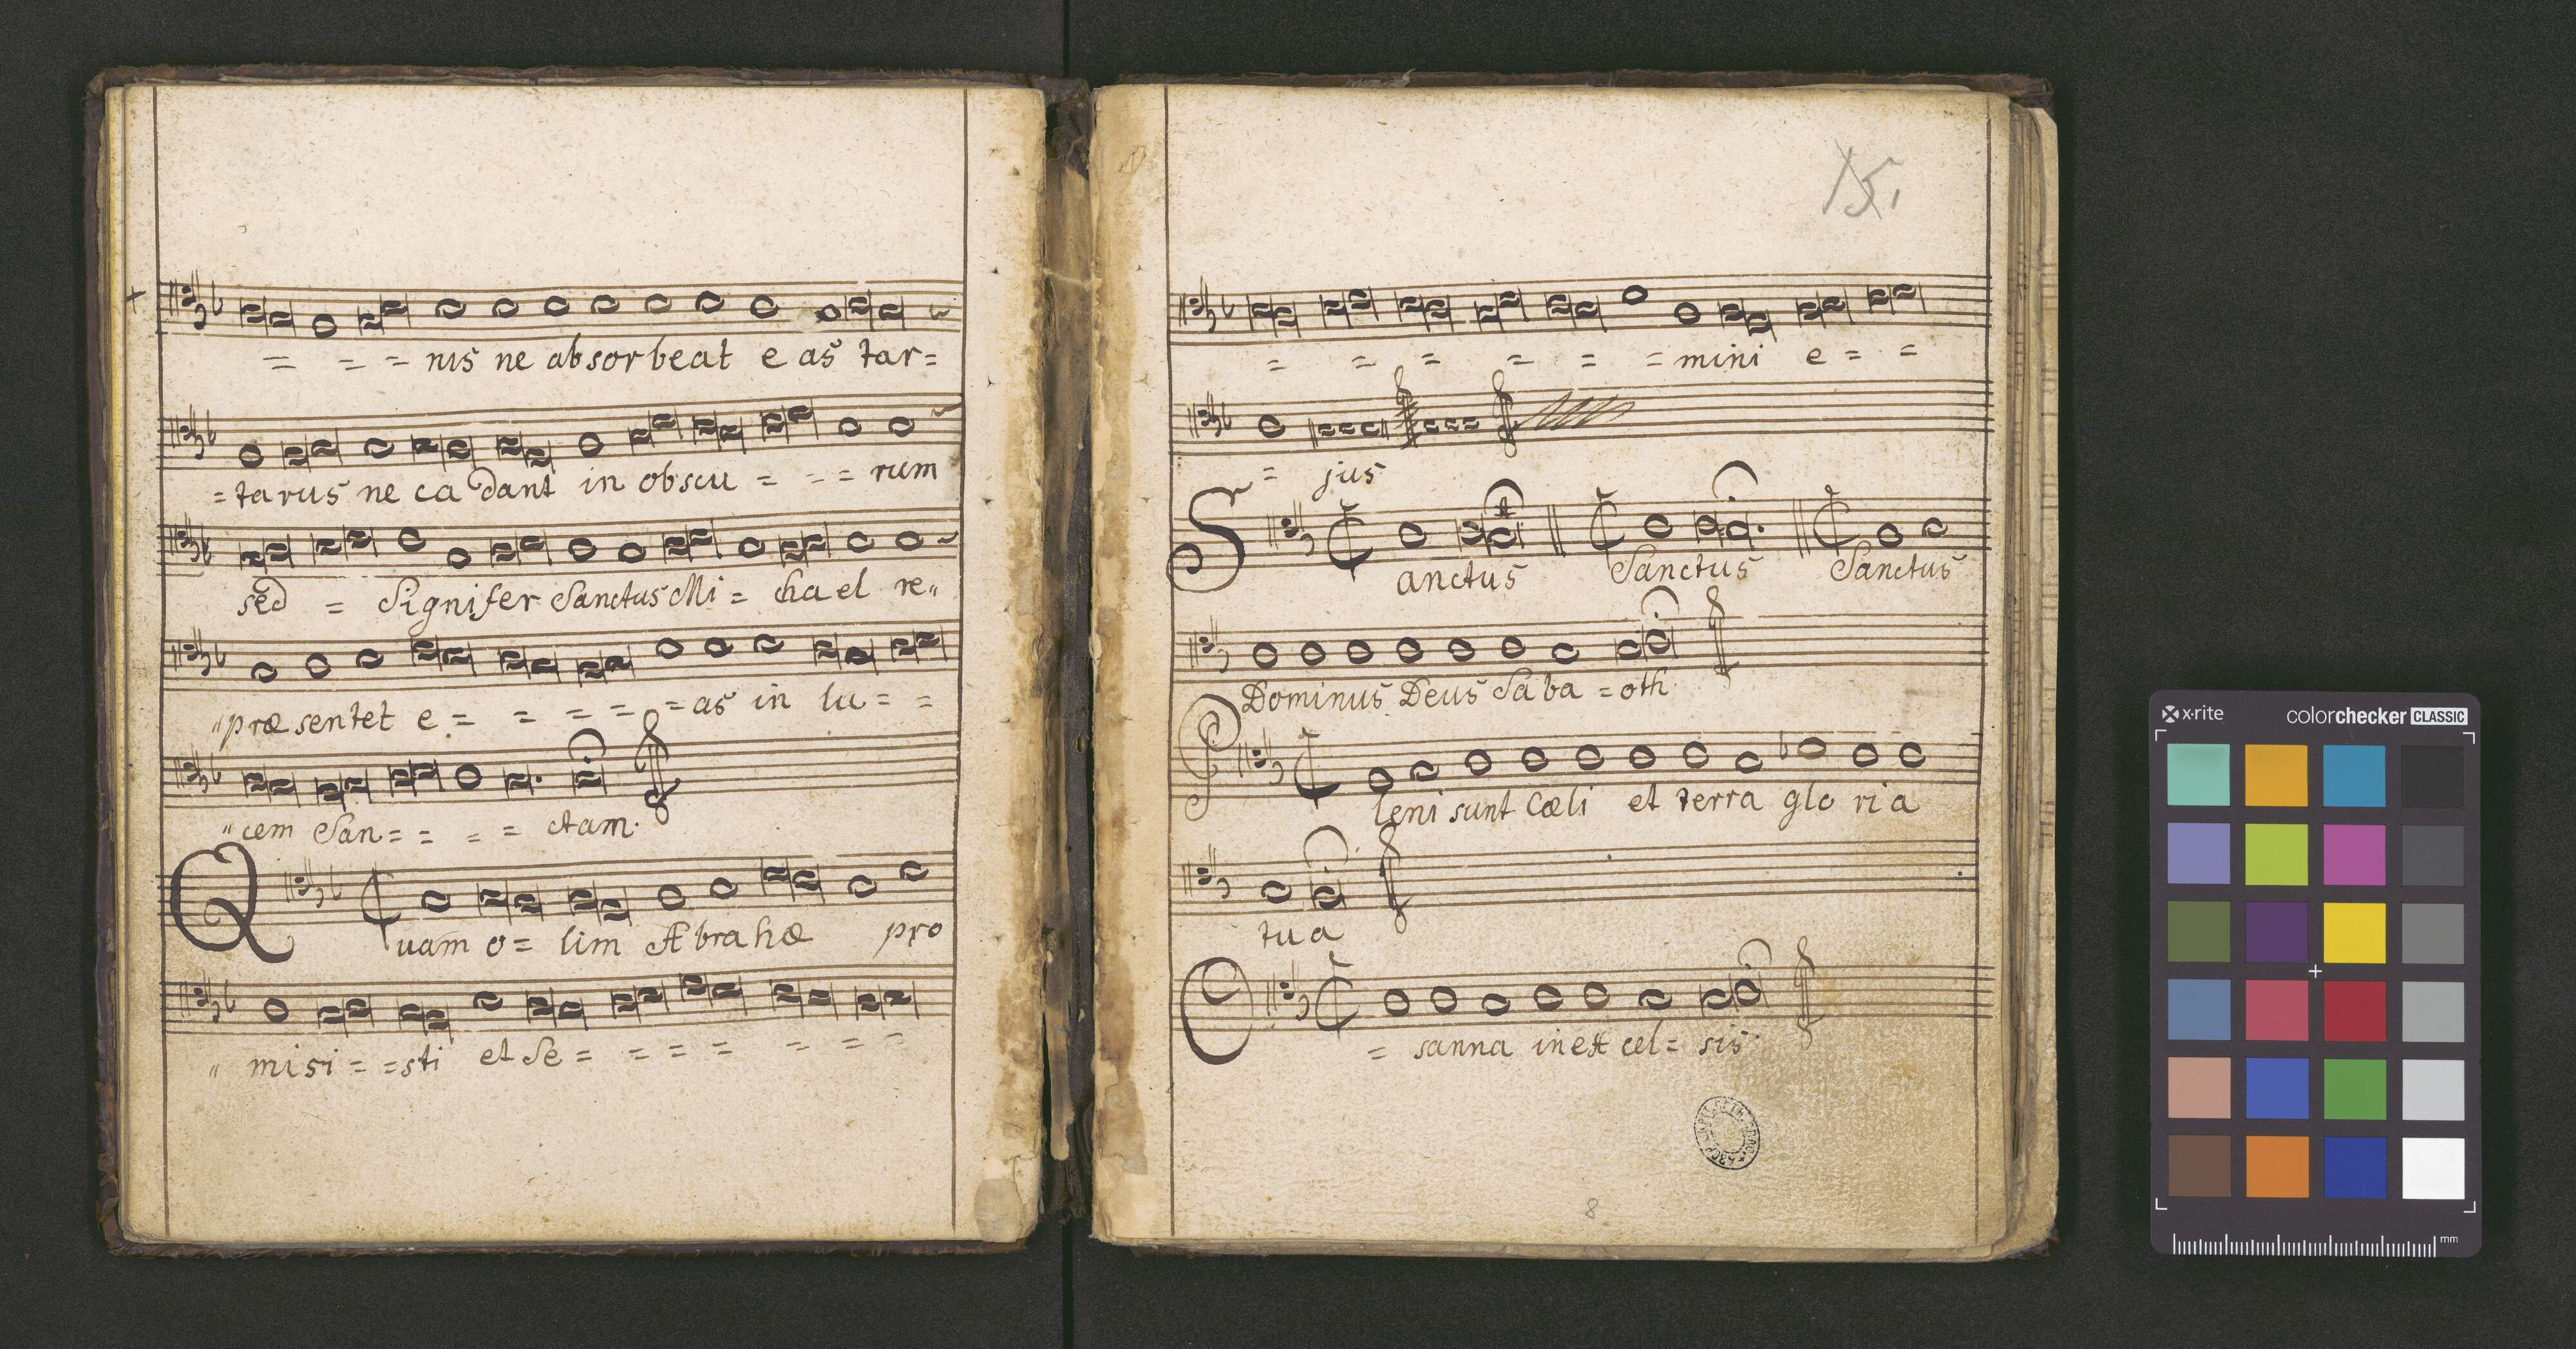 = = = nis ne absorbeat e as tar=
= tarus ne ca dant in obscu = - - = rum
sed = Signifer Sanctus Mi = cha el re„
„præ sentet e = = = = = as in lu = =
„cem San = = = = ctam.
Quam o = lim Abrahæ pro
„ mi si = = sti et Se = = = = = = =
15,
= = = = = = mini e = =
= jus
Sanctus Sanctus Sanctus
Dominus Deus Sa ba = oth
Pleni sunt Cœli et terra glo ri a
tu a
O = sanna in ex cel = sis.
8
x·rite colorchecker CLASSIC
mm